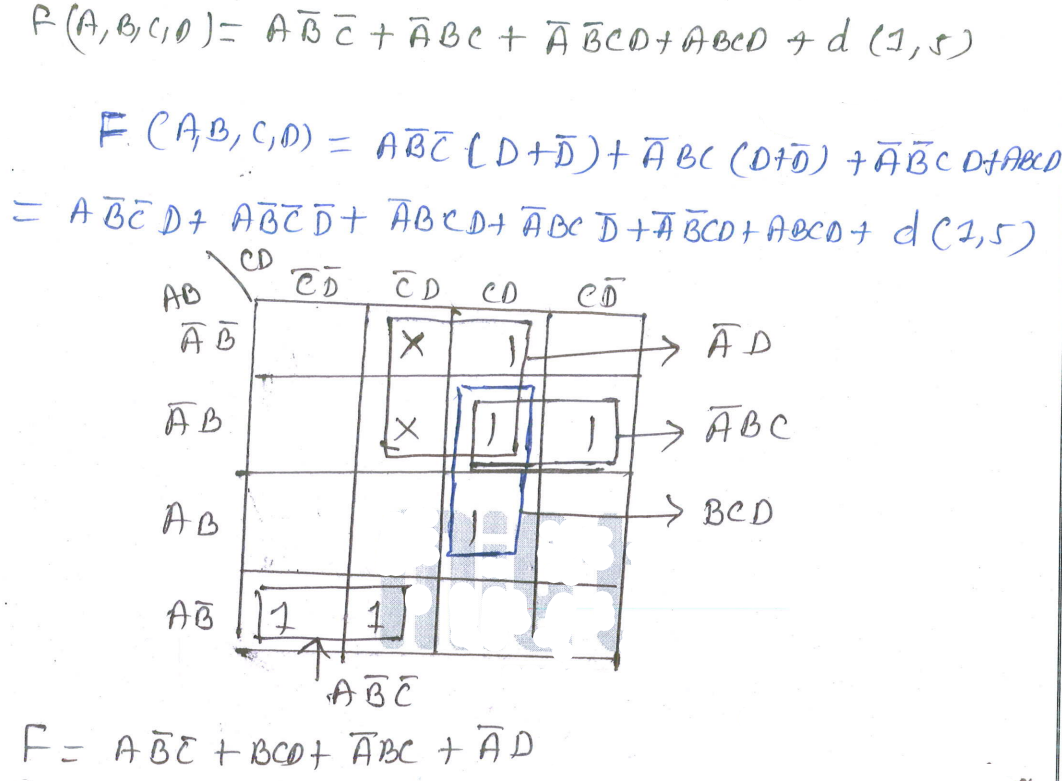 F(A,B,C,D) = AB̅C̅ + A̅BC + A̅B̅CD + ABCD + d (1,5)
F(A,B,C,D) = AB̅C̅(D+D̅) + A̅BC(D+D̅) + A̅B̅CD+ABCD
= AB̅C̅D + AB̅C̅D̅ + A̅BCD + A̅BCD̅ + A̅B̅CD + ABCD + d(1,5)
CD
AB C̅D̅ C̅D CD CD̅
A̅B̅ X 1 → A̅D
A̅B X 1 1 → A̅BC
AB 1 → BCD
AB̅ 1 1
AB̅C̅
F = AB̅C̅ + BCD + A̅BC + A̅D